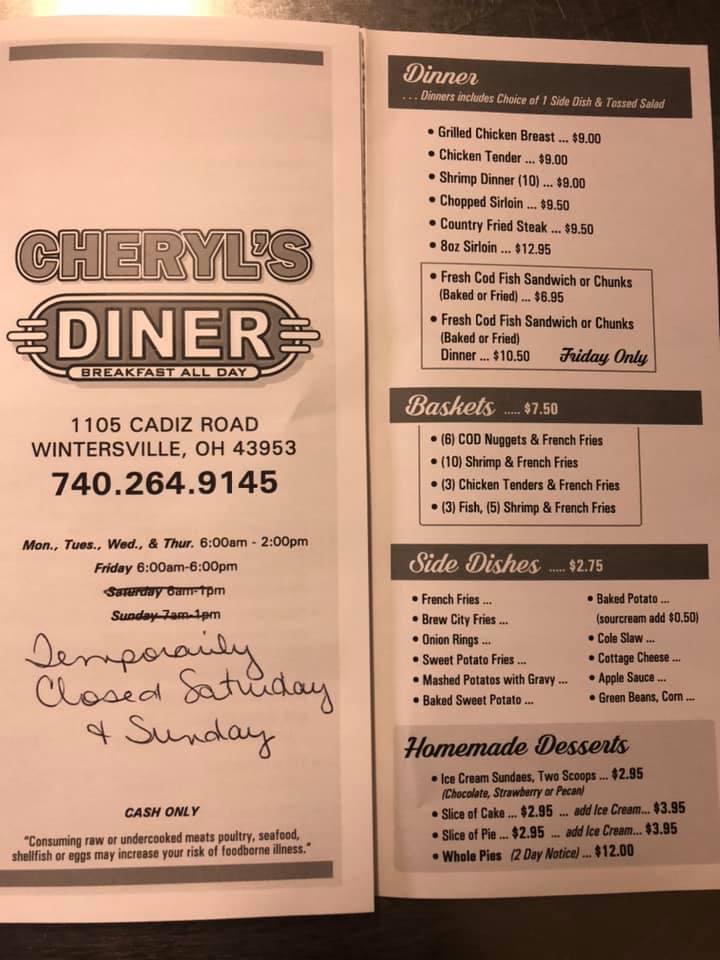 CHERYL'S
DINER
BREAKFAST ALL DAY
1105 CADIZ ROAD
WINTERSVILLE, OH 43953
740.264.9145
Mon., Tues., Wed., & Thur. 6:00am - 2:00pm
Friday 6:00am-6:00pm
Saturday 6am-1pm
Sunday 7am-1pm
Temporarily
Closed Saturday
& Sunday
CASH ONLY
"Consuming raw or undercooked meats poultry, seafood,
shellfish or eggs may increase your risk of foodborne illness."
Dinner
. . . Dinners includes Choice of 1 Side Dish & Tossed Salad
• Grilled Chicken Breast ... $9.00
• Chicken Tender ... $9.00
• Shrimp Dinner (10) ... $9.00
• Chopped Sirloin ... $9.50
• Country Fried Steak ... $9.50
• 8oz Sirloin ... $12.95
• Fresh Cod Fish Sandwich or Chunks
(Baked or Fried) ... $6.95
• Fresh Cod Fish Sandwich or Chunks
(Baked or Fried)
Dinner ... $10.50 Friday Only
Baskets ..... $7.50
• (6) COD Nuggets & French Fries
• (10) Shrimp & French Fries
• (3) Chicken Tenders & French Fries
• (3) Fish, (5) Shrimp & French Fries
Side Dishes ..... $2.75
• French Fries ...
• Brew City Fries ...
• Onion Rings ...
• Sweet Potato Fries ...
• Mashed Potatos with Gravy ...
• Baked Sweet Potato ...
• Baked Potato ...
(sourcream add $0.50)
• Cole Slaw ...
• Cottage Cheese ...
• Apple Sauce ...
• Green Beans, Corn ...
Homemade Desserts
• Ice Cream Sundaes, Two Scoops ... $2.95
(Chocolate, Strawberry or Pecan)
• Slice of Cake ... $2.95 ... add Ice Cream... $3.95
• Slice of Pie ... $2.95 ... add Ice Cream... $3.95
• Whole Pies (2 Day Notice) ... $12.00